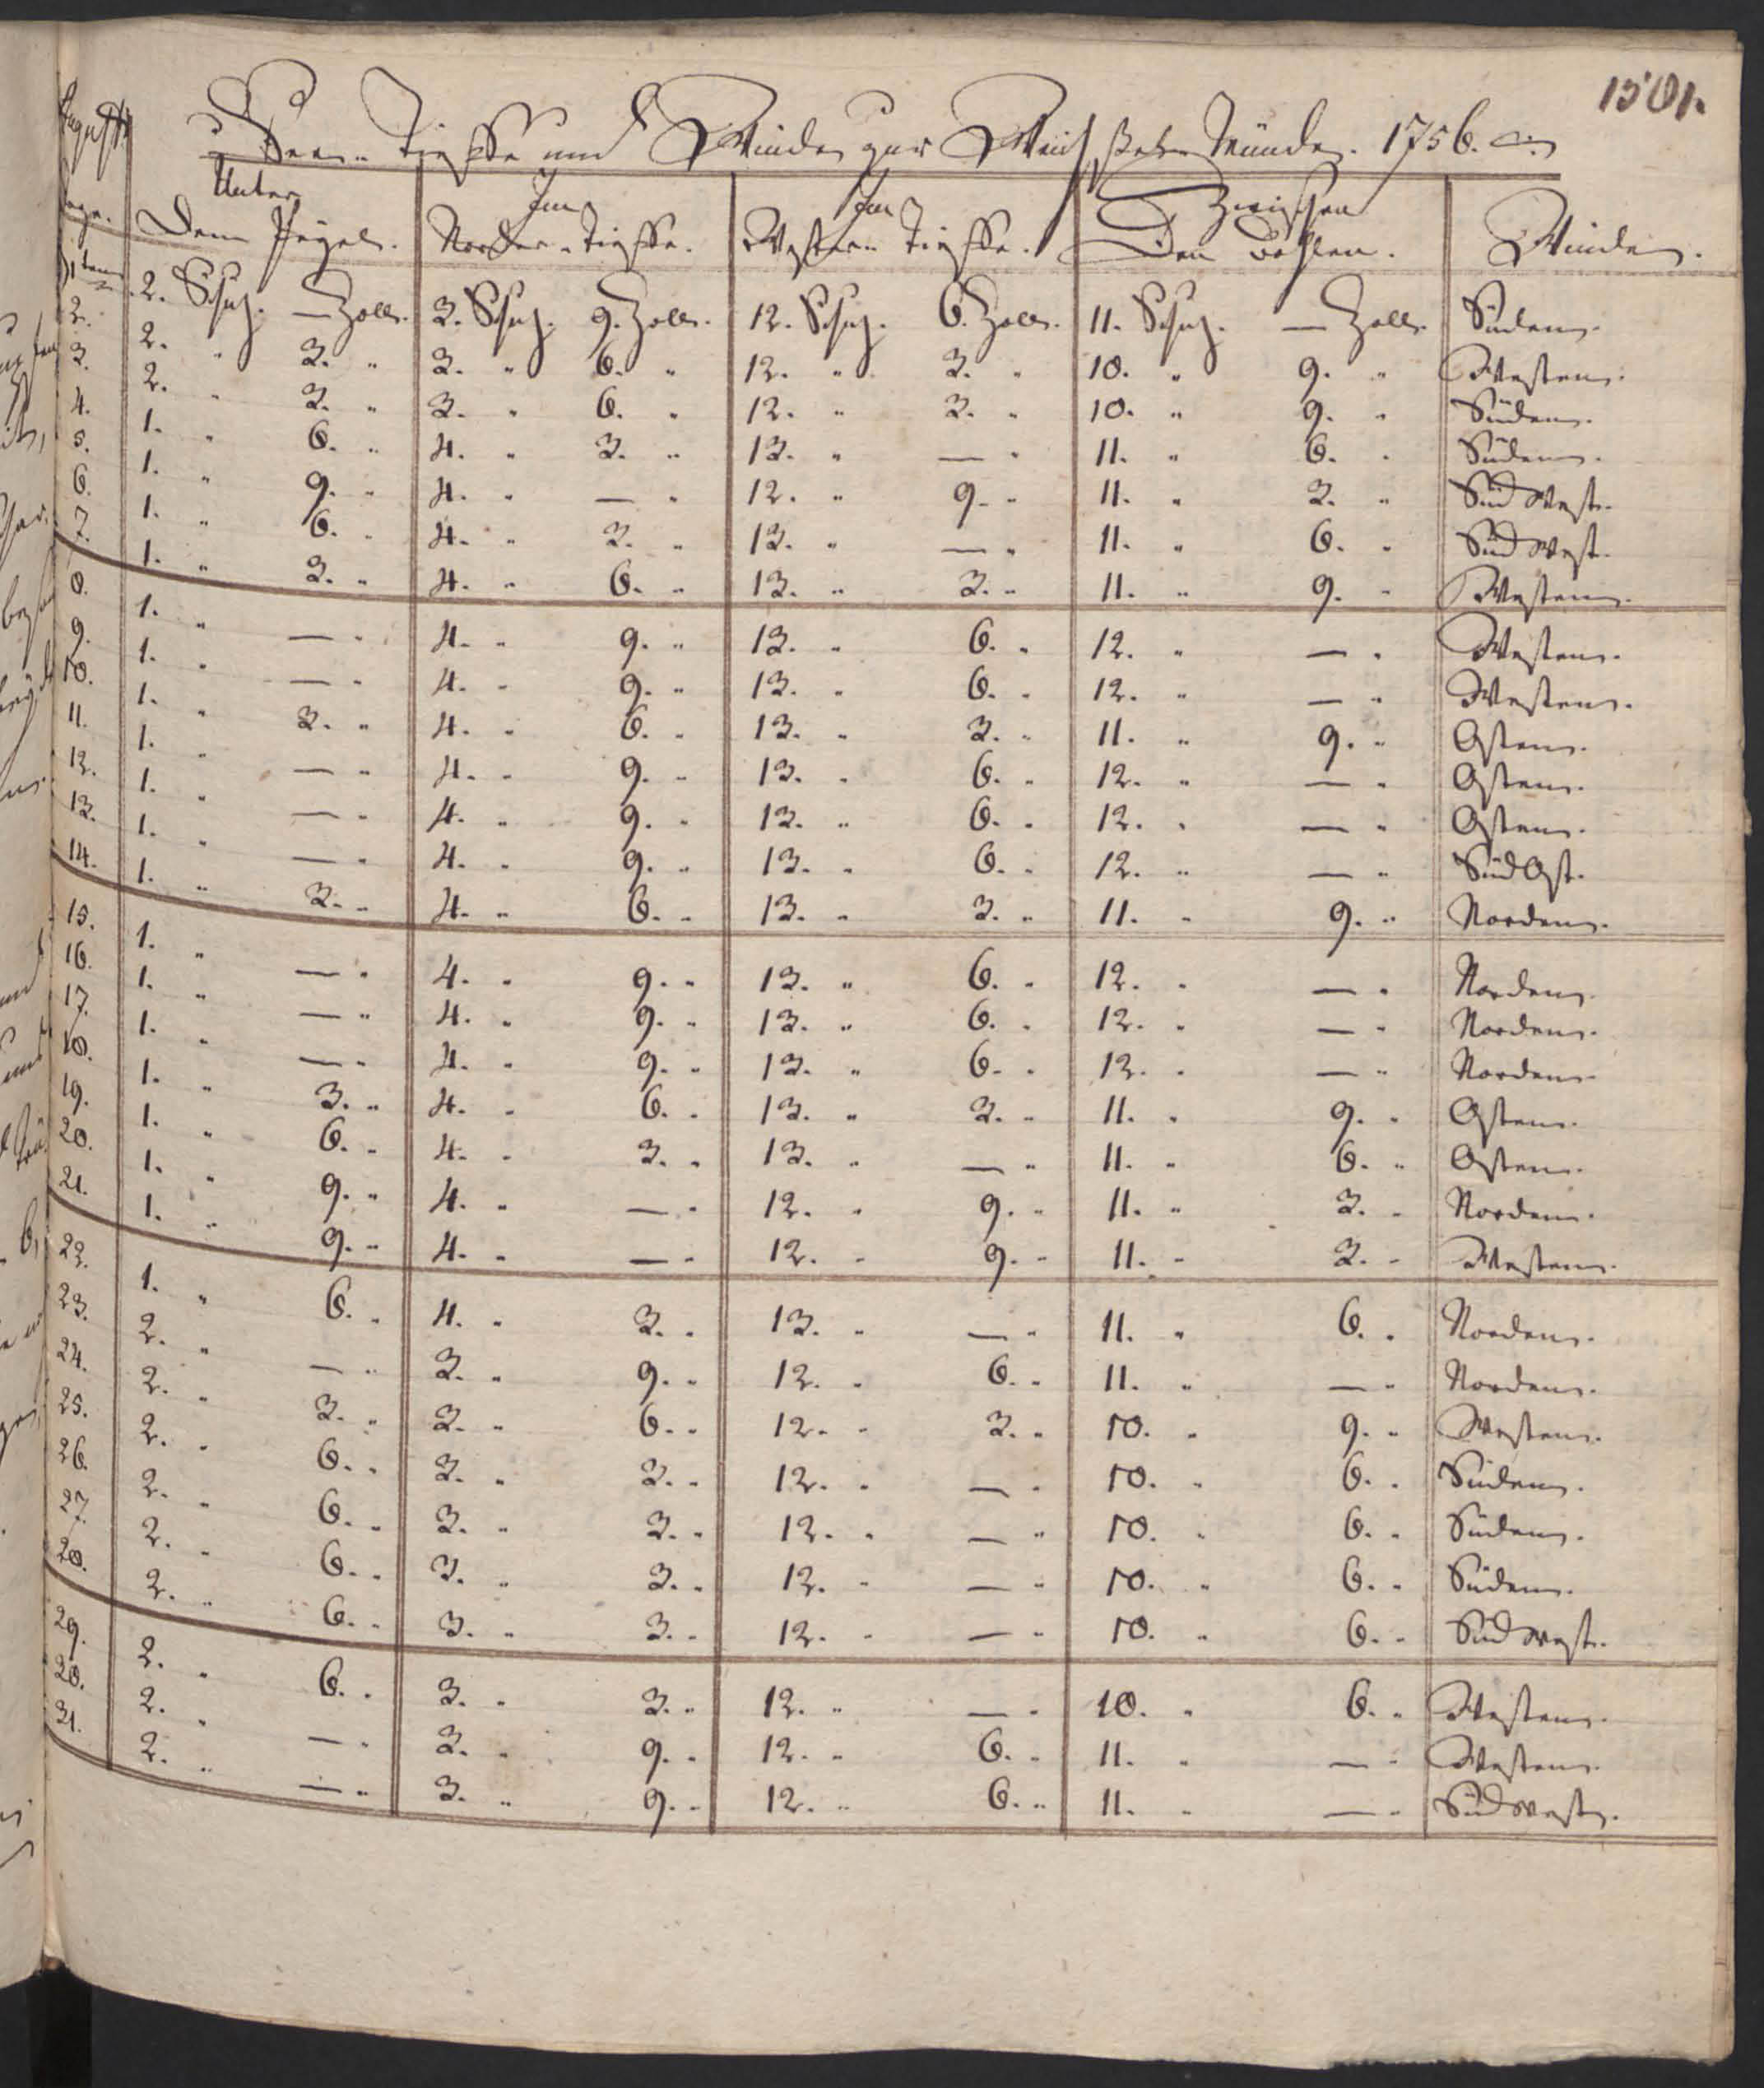 1501.
August
See-Tieffe und Winde zur Weichselmünde. 1756.
Tage. Unter Dem Pegel. Im Norder-Tieffe. Im Wester-Tieffe. Zwischen Den Bohlen. Winde.
1ten 2. Schuh. — Zoll. 3. Schuh. 9. Zoll. 12. Schuh. 6. Zoll. 11. Schuh. — Zoll. Süden.
2. 2. " 3. " 3. " 6. " 12. " 3. " 10. " 9. " Westen.
3. 2. " 3. " 3. " 6. " 12. " 3. " 10. " 9. " Süden.
4. 1. " 6. " 4. " 3. " 13. " — " 11. " 6. " Süden.
5. 1. " 9. " 4. " — " 12. " 9. " 11. " 3. " Süd West.
6. 1. " 6. " 4. " 3. " 13. " — " 11. " 6. " Süd West.
7. 1. " 3. " 4. " 6. " 13. " 3. " 11. " 9. " Westen.
8. 1. " — " 4. " 9. " 13. " 6. " 12. " — " Westen.
9. 1. " — " 4. " 9. " 13. " 6. " 12. " — " Westen.
10. 1. " 3. " 4. " 6. " 13. " 3. " 11. " 9. " Osten.
11. 1. " — " 4. " 9. " 13. " 6. " 12. " — " Osten.
12. 1. " — " 4. " 9. " 13. " 6. " 12. " — " Osten.
13. 1. " — " 4. " 9. " 13. " 6. " 12. " — " Süd Ost.
14. 1. " 3. " 4. " 6. " 13. " 3. " 11. " 9. " Norden.
15. 1. " — " 4. " 9. " 13. " 6. " 12. " — " Norden.
16. 1. " — " 4. " 9. " 13. " 6. " 12. " — " Norden.
17. 1. " — " 4. " 9. " 13. " 6. " 12. " — " Norden.
18. 1. " 3. " 4. " 6. " 13. " 3. " 11. " 9. " Osten.
19. 1. " 6. " 4. " 3. " 13. " — " 11. " 6. " Osten.
20. 1. " 9. " 4. " — " 12. " 9. " 11. " 3. " Norden.
21. 1. " 9. " 4. " — " 12. " 9. " 11. " 3. " Westen.
22. 1. " 6. " 4. " 3. " 13. " — " 11. " 6. " Norden.
23. 2. " — " 3. " 9. " 12. " 6. " 11. " — " Norden.
24. 2. " 3. " 3. " 6. " 12. " 3. " 10. " 9. " Westen.
25. 2. " 6. " 3. " 3. " 12. " — " 10. " 6. " Süden.
26. 2. " 6. " 3. " 3. " 12. " — " 10. " 6. " Süden.
27. 2. " 6. " 3. " 3. " 12. " — " 10. " 6. " Süden.
28. 2. " 6. " 3. " 3. " 12. " — " 10. " 6. " Südwest.
29. 2. " 6. " 3. " 3. " 12. " — " 10. " 6. " Westen.
30. 2. " — " 3. " 9. " 12. " 6. " 11. " — " Westen.
31. 2. " — " 3. " 9. " 12. " 6. " 11. " — " Südwest.